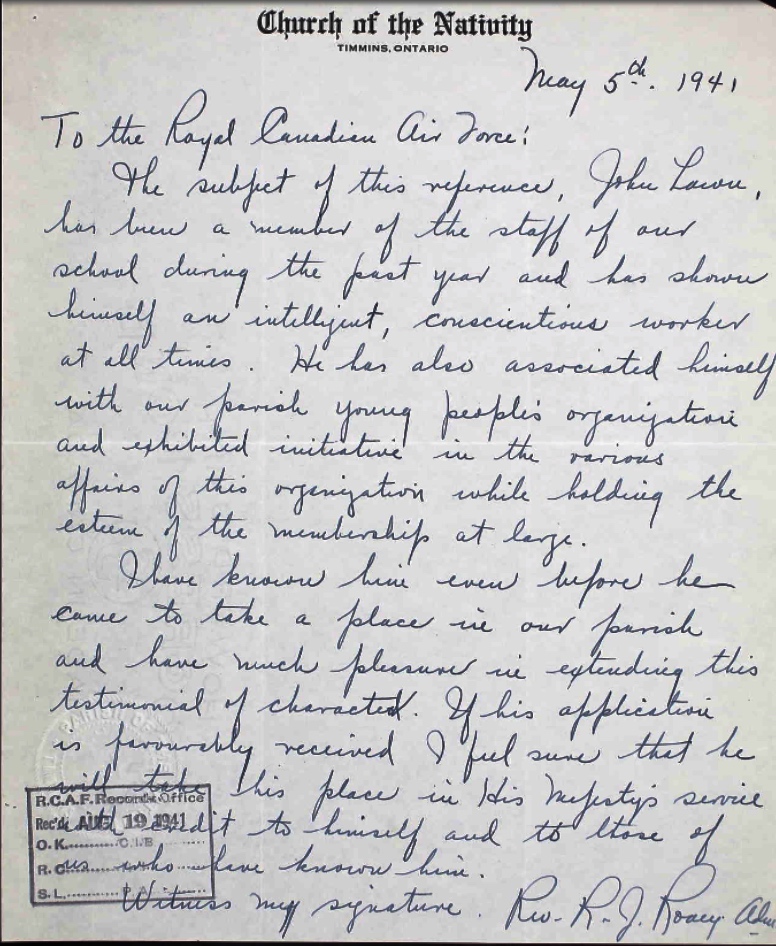 Church of the Nativity
TIMMINS, ONTARIO
May 5th. 1941
To the Royal Canadian Air Force:
The subject of this reference, John Lawn,
has been a member of the staff of our
school during the past year and has shown
himself an intelligent, conscientious worker
at all times. He has also associated himself
with our parish young people's organization
and exhibited initiative in the various
affairs of this organization while holding the
esteem of the membership at large.
I have known him even before he
came to take a place in our parish
and have much pleasure in extending this
testimonial of character. If his application
is favourably received I feel sure that he
will take his place in His Majesty's service
with credit to himself and to those of
us who have known him.
Witness my signature. Rev. R. J. Roney Adm
R.C.A.F. Records Office
Rec'd. AUG 19 1941
O.K.
R.C.
S.L.